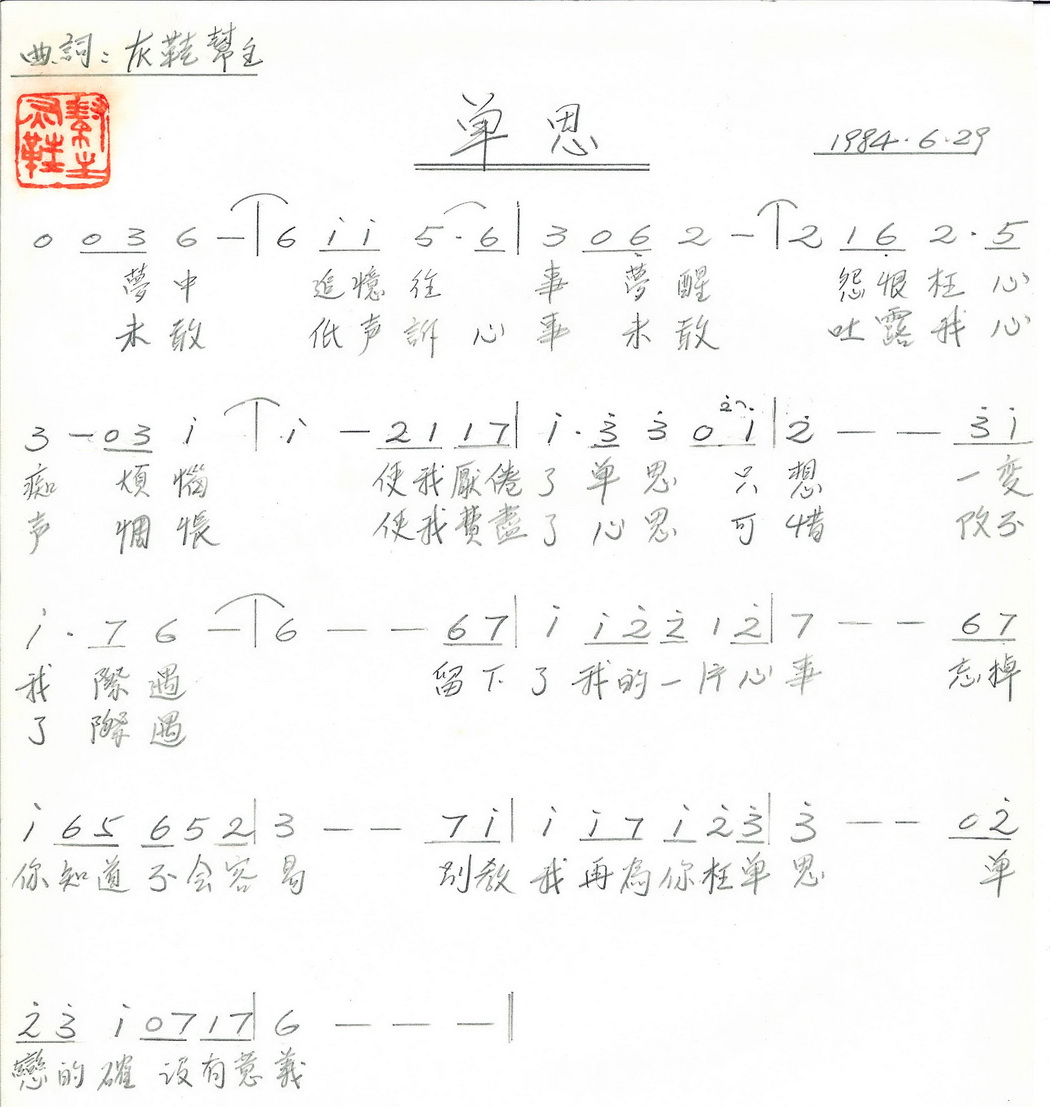 曲詞：灰鞋幫主
单思
1984.6.29
0 0 3 6 — | 6 i i 5 . 6 | 3 0 6 2 — | 2 1 6 2 . 5
夢中 追憶往 事 夢醒 怨恨枉心
未敢 低声訴心事 未敢 吐露我心
3 — 0 3 i | i — 2 1 1 7 | i . 3 3 0 i | 2 — — 3 i
痴 煩惱 使我厭倦了单思 只想 一变
声 惆悵 使我費盡了心思 可惜 改不
i . 7 6 — | 6 — — 6 7 | i i 2 2 1 2 | 7 — — 6 7
我 際遇 留下了我的一片心事 忘掉
了 際遇
i 6 5 6 5 2 | 3 — — 7 i | i i 7 i 2 3 | 3 — — 0 2
你知道不会容易 別教我再為你枉单思 单
2 3 i 0 7 1 7 | 6 — — — ||
戀的確 没有意義